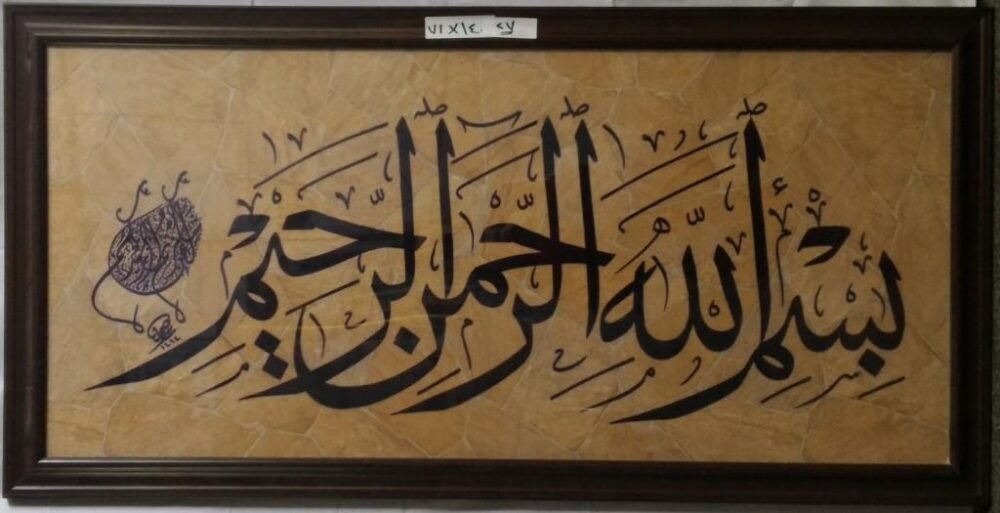 ٧١ X ١٤٠
بسم الله الرحمن الرحيم